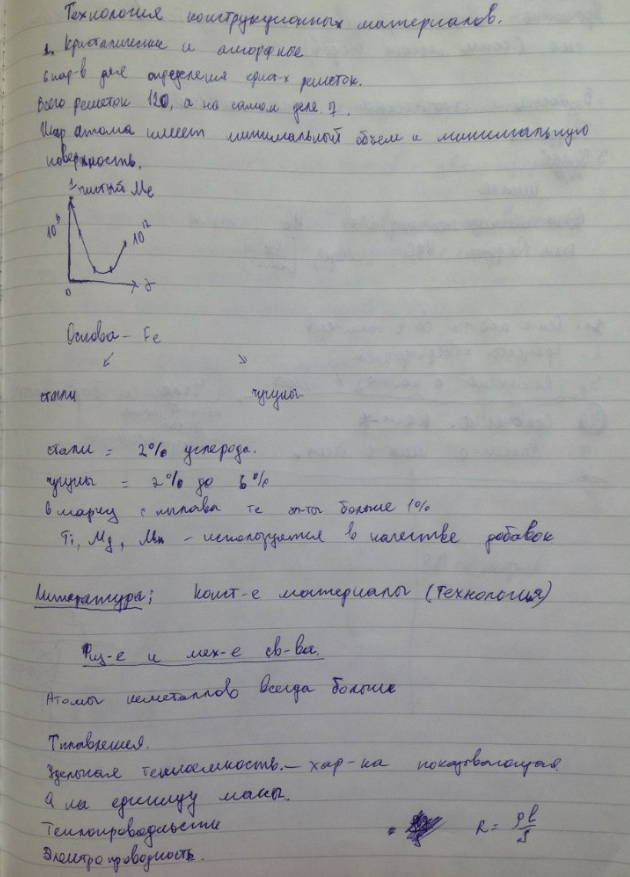 Технология конструкционных материалов.
1. Кристалические и аморфные
6 пар-в для определения крист-х решеток.
Всего решеток 120, а на самом деле 7.
Шар атома имеет минимальный объем и минимальную
поверхность.
чистый Me
10^12
0
Основа - Fe
стали чугуны
стали = 2% углерода.
чугуны = 2% до 6%
в марку сплава те эл-ты больше 1%
Ti, Mg, Mn - используется в качестве добавок
Литература; Конст-е материалы (Технология)
Физ-е и мех-е св-ва.
Атомы неметаллово всегда больше
Tплавления.
Удельная теплоемкость. - хар-ка показывающая
Q на еденицу масы.
Теплопроводность
= R = ρl/S
Электропроводность.